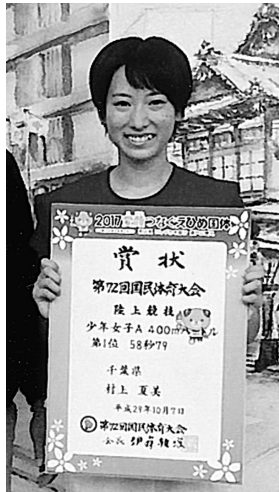 2017 つなぐえひめ国体
賞状
第72回国民体育大会
陸上競技
少年女子A 400mハードル
第1位 58秒79
千葉県
村上 夏美
平成29年10月7日
第72回国民体育大会
会長 伊藤雅俊